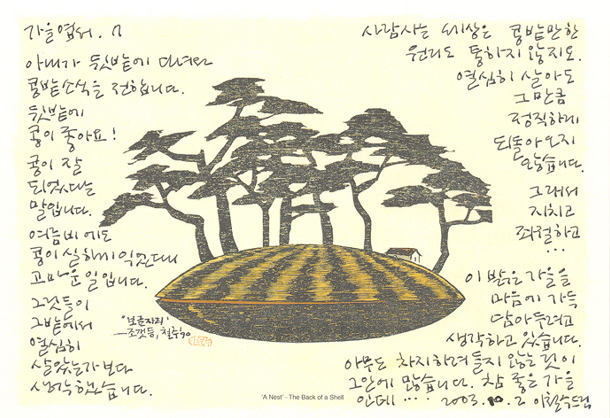 가을엽서.
아내가 뒷밭에 다녀와
콩밭소식을 전합니다.
뒷밭에
콩이 좋아요!
콩이 잘
되었다는
말입니다.
여름비에도
콩이 실하게 익었다니
고마운 일입니다.
그것들이
그밭에서
열심히
살았는가보다
생각했습니다.
사람사는 세상은 콩밭만한
원리도 통하지 않지요.
열심히 살아도
그만큼
정직하게
되돌아오지
않습니다.
그래서
지치고
좌절하고
...
이 밝은 가을을
마음에 가득
담아두려고
생각하고 있습니다.
아무도 차지하려들지 않는 것이
그안에 많습니다. 참 좋은 가을
인데 ... 2003. 10. 2 이철수드림
"보금자리"
—조갯등, 철수90
'A Nest' - The Back of a Shell